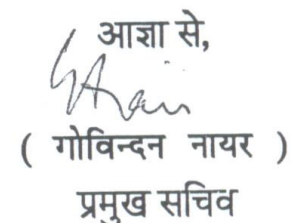 आज्ञा से,
( गोविन्दन नायर )
प्रमुख सचिव